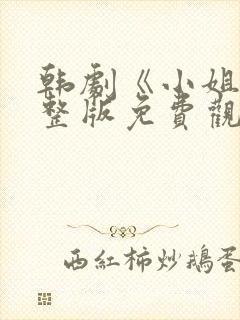 韩劇《小姐
整版免費觀
西紅柿炒鵝蛋